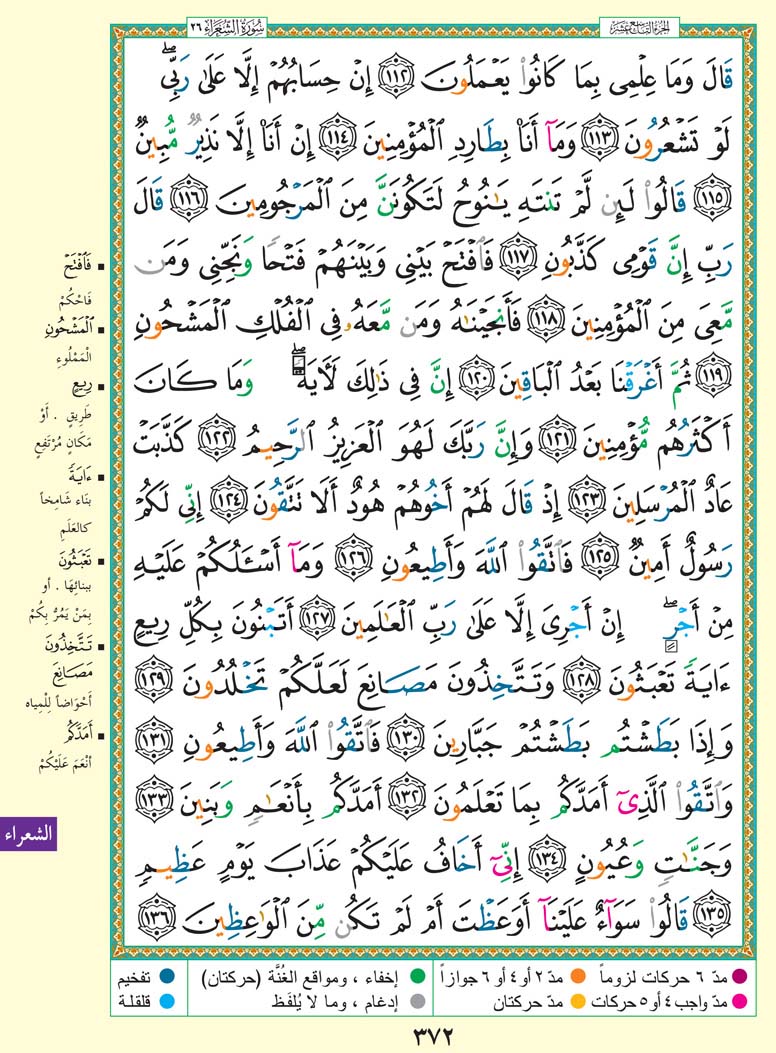 الجزء التاسع عشر
سُورَةُ الشُّعَرَاءِ ٢٦
قَالَ وَمَا عِلْمِى بِمَا كَانُوا۟ يَعْمَلُونَ ١١٢ إِنْ حِسَابُهُمْ إِلَّا عَلَىٰ رَبِّى ۖ
لَوْ تَشْعُرُونَ ١١٣ وَمَآ أَنَا۠ بِطَارِدِ ٱلْمُؤْمِنِينَ ١١٤ إِنْ أَنَا۠ إِلَّا نَذِيرٌ مُّبِينٌ
١١٥ قَالُوا۟ لَئِن لَّمْ تَنتَهِ يَـٰنُوحُ لَتَكُونَنَّ مِنَ ٱلْمَرْجُومِينَ ١١٦ قَالَ
رَبِّ إِنَّ قَوْمِى كَذَّبُونِ ١١٧ فَٱفْتَحْ بَيْنِى وَبَيْنَهُمْ فَتْحًا وَنَجِّنِى وَمَن
مَّعِىَ مِنَ ٱلْمُؤْمِنِينَ ١١٨ فَأَنجَيْنَـٰهُ وَمَن مَّعَهُۥ فِى ٱلْفُلْكِ ٱلْمَشْحُونِ
١١٩ ثُمَّ أَغْرَقْنَا بَعْدُ ٱلْبَاقِينَ ١٢٠ إِنَّ فِى ذَٰلِكَ لَـَٔايَةً ۖ وَمَا كَانَ
أَكْثَرُهُم مُّؤْمِنِينَ ١٢١ وَإِنَّ رَبَّكَ لَهُوَ ٱلْعَزِيزُ ٱلرَّحِيمُ ١٢٢ كَذَّبَتْ
عَادٌ ٱلْمُرْسَلِينَ ١٢٣ إِذْ قَالَ لَهُمْ أَخُوهُمْ هُودٌ أَلَا تَتَّقُونَ ١٢٤ إِنِّى لَكُمْ
رَسُولٌ أَمِينٌ ١٢٥ فَٱتَّقُوا۟ ٱللَّهَ وَأَطِيعُونِ ١٢٦ وَمَآ أَسْـَٔلُكُمْ عَلَيْهِ
مِنْ أَجْرٍ ۖ إِنْ أَجْرِىَ إِلَّا عَلَىٰ رَبِّ ٱلْعَـٰلَمِينَ ١٢٧ أَتَبْنُونَ بِكُلِّ رِيعٍ
ءَايَةً تَعْبَثُونَ ١٢٨ وَتَتَّخِذُونَ مَصَانِعَ لَعَلَّكُمْ تَخْلُدُونَ ١٢٩
وَإِذَا بَطَشْتُم بَطَشْتُمْ جَبَّارِينَ ١٣٠ فَٱتَّقُوا۟ ٱللَّهَ وَأَطِيعُونِ ١٣١
وَٱتَّقُوا۟ ٱلَّذِىٓ أَمَدَّكُم بِمَا تَعْلَمُونَ ١٣٢ أَمَدَّكُم بِأَنْعَـٰمٍ وَبَنِينَ ١٣٣
وَجَنَّـٰتٍ وَعُيُونٍ ١٣٤ إِنِّىٓ أَخَافُ عَلَيْكُمْ عَذَابَ يَوْمٍ عَظِيمٍ
١٣٥ قَالُوا۟ سَوَآءٌ عَلَيْنَآ أَوَعَظْتَ أَمْ لَمْ تَكُن مِّنَ ٱلْوَٰعِظِينَ ١٣٦
■ فَٱفْتَحْ
فَاحْكُمْ
■ ٱلْمَشْحُونِ
الْمَمْلُوءِ
■ رِيعٍ
طَرِيقٍ . أَوْ
مَكَانٍ مُرْتَفِعٍ
■ ءَايَةً
بِنَاء شَامِخاً
كالعَلَمِ
■ تَعْبَثُونَ
ببنائِهَا . أو
بِمَنْ يَمُرُّ بِكُمْ
■ تَتَّخِذُونَ
مَصَانِعَ
أحْوَاضاً لِلْمِيَاه
■ أَمَدَّكُم
أنْعَمَ عَلَيْكُمْ
الشعراء
● مدّ ٦ حركات لزوماً ● مدّ ٢ أو ٤ أو ٦ جوازاً ● إخفاء ، ومواقع الغُنَّة (حركتان) ● تفخيم
● مدّ واجب ٤ أو ٥ حركات ● مدّ حركتان ● إدغام ، وما لا يُلفَظ ● قلقلة
٣٧٢